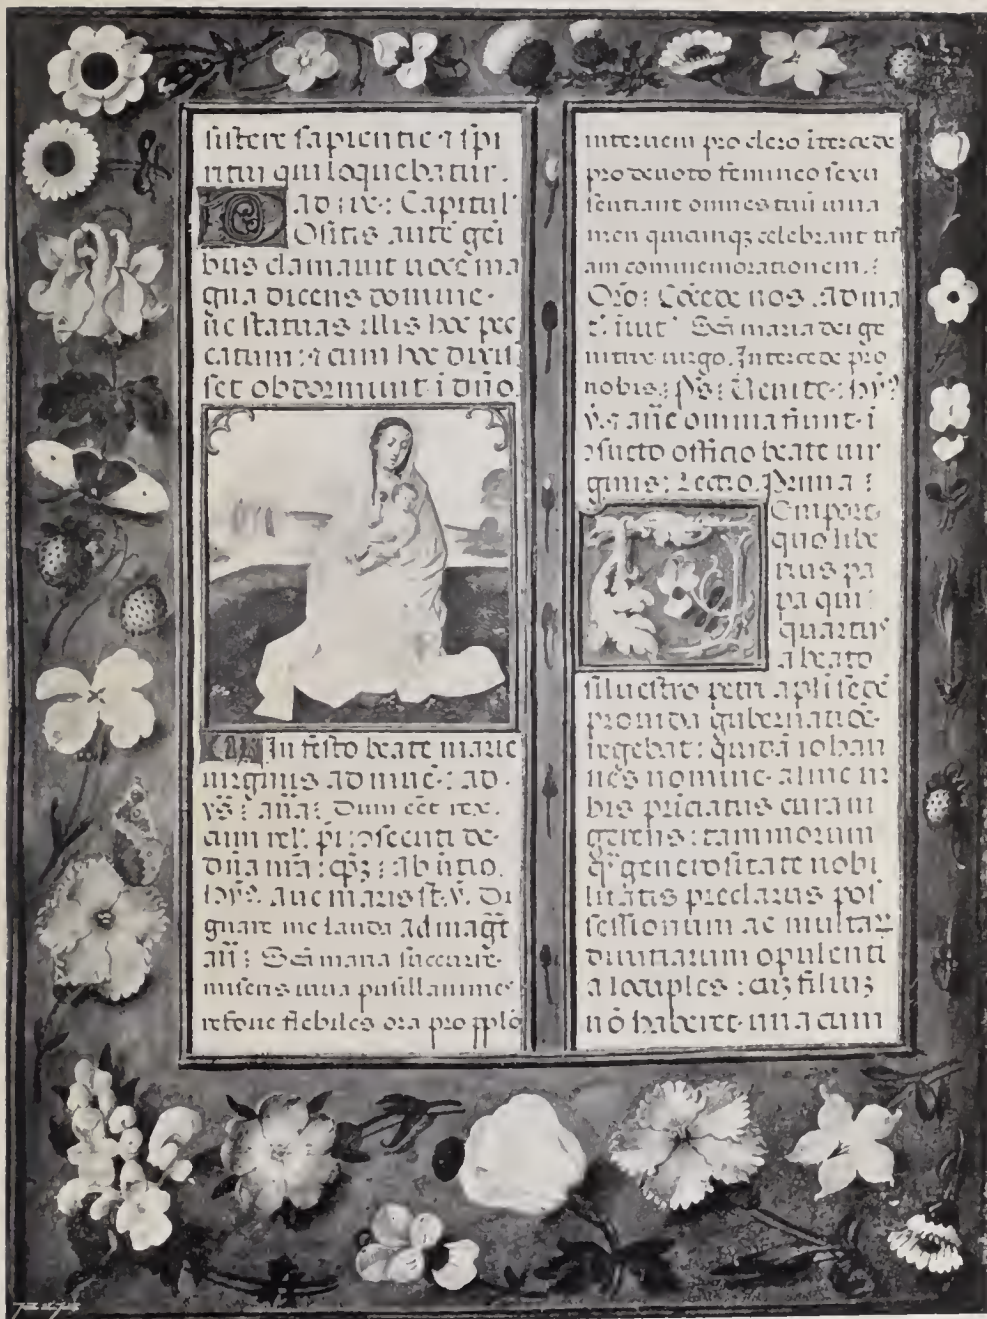 sistere sapientie ⁊ spi
ritui qui loquebatur.
ad : ix : Capitulˀ
Ositis aute geī
bus clamauit uoce ma
gna dicens domine
ne statuas illis hoc pec
catum : ⁊ cum hoc dixis
set obdormiuit ī dño
In festo beate marie
uirginis ad niue : ad
vs̄ : aña : Dum eet rex.
cum rel. pi : oscenti de
dña mā : cpz : ab initio.
hyˢ. aue maris st. v̄. Di
gnare me lauda ad magt
añ : Scā maria succurre
miseris iuua pusillanimes
refoue flebiles ora pro pplo
interueni pro clero ītercede
pro deuoto femineo sexu
sentiant omnes tuū iuua
men quicumqz celebrant tuā
am commemorationem :
Oro : Cōcede nos . ad ma
t. iuit Scā maria dei ge
nitrix uirgo. Intercede pro
nobis : ps̄ : Uenite : hyˢ
omnia fiunt ī
ɔsueto officio beate uir
ginis : Lectio Prima :
Empore
quo libe
rius pa
pa qui
quartus
a beato
siluestro petri apli sedē
prouida gubernatiōe
regebat : quidā iohan
nes nomine alme ur
bis priciatus curam
gerens : tam morum
qʒ generositate nobi
litatis preclarus pos
sessionum ac multaꝝ
diuitiarum opulenti
a locuples : cuʒ filiuʒ
nō haberet una cum